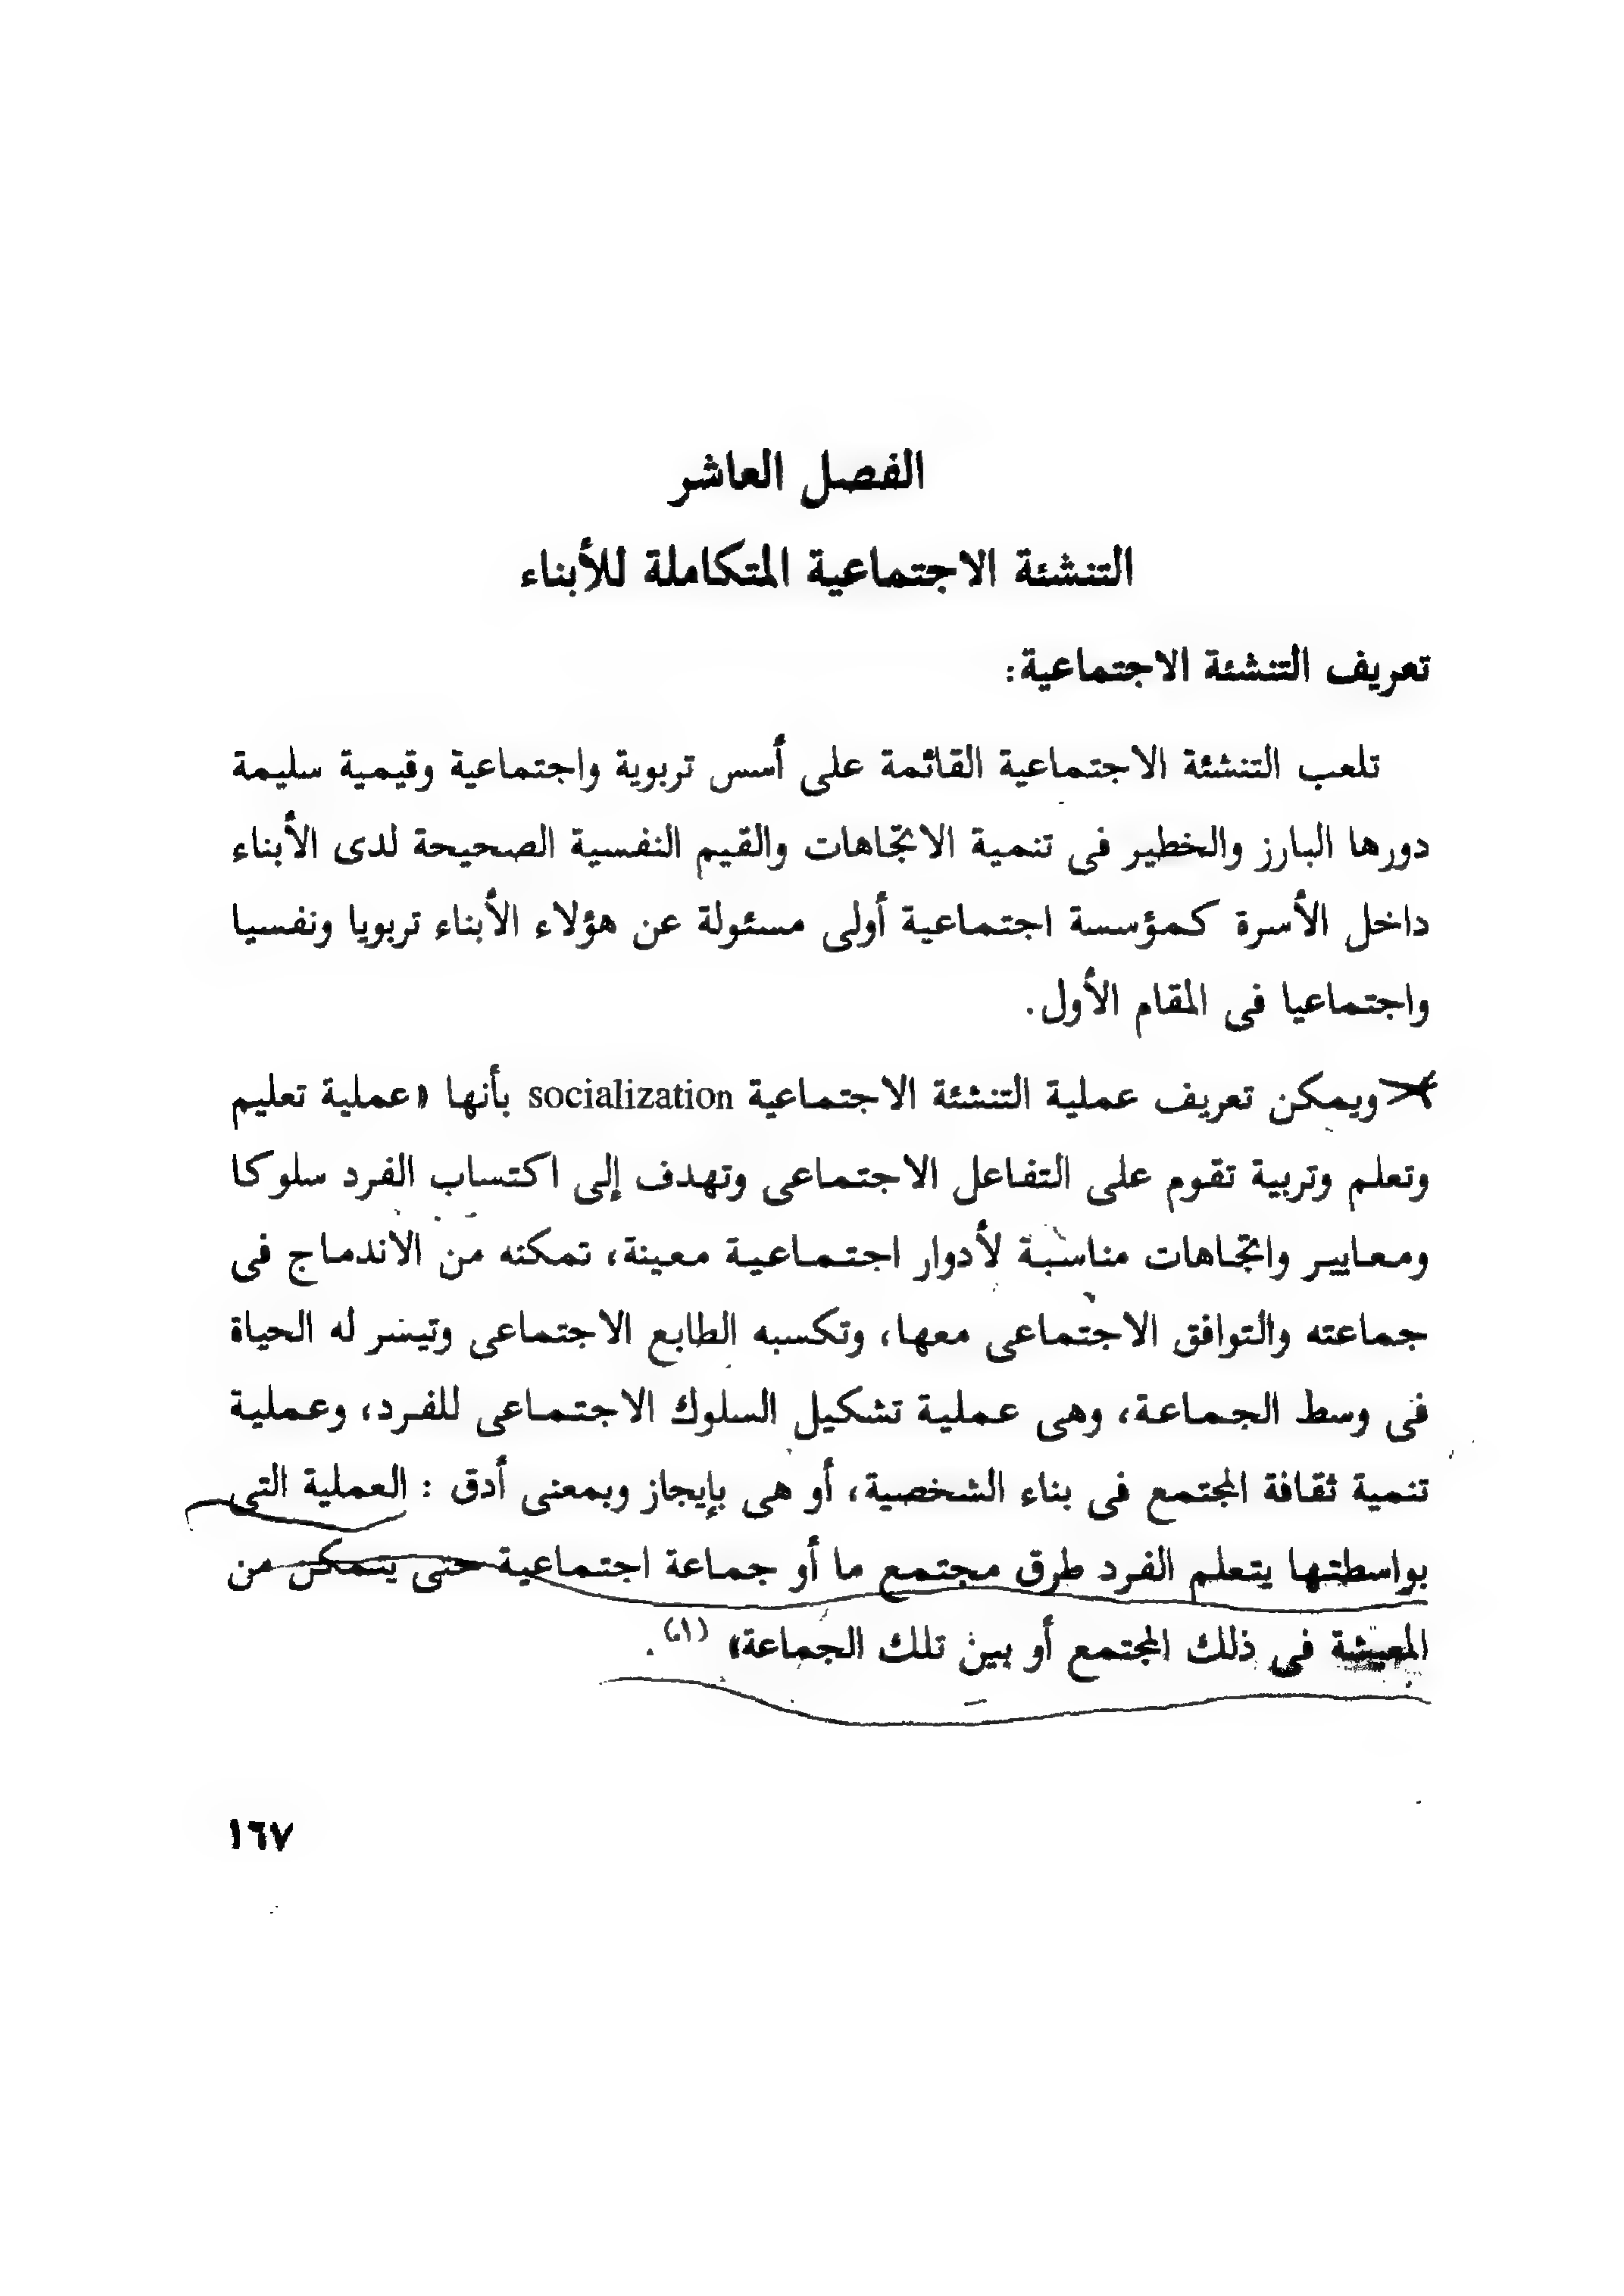 الفصل العاشر
التنشئة الاجتماعية المتكاملة للأبناء
تعريف التنشئة الاجتماعية:
تلعب التنشئة الاجتماعية القائمة على أسس تربوية واجتماعية وقيمية سليمة
دورها البارز والخطير فى تنمية الاتجاهات والقيم النفسية الصحيحة لدى الأبناء
داخل الأسرة كمؤسسة اجتماعية أولى مسئولة عن هؤلاء الأبناء تربويا ونفسيا
واجتماعيا فى المقام الأول.
ويمكن تعريف عملية التنشئة الاجتماعية socialization بأنها «عملية تعليم
وتعلم وتربية تقوم على التفاعل الاجتماعى وتهدف إلى اكتساب الفرد سلوكا
ومعايير واتجاهات مناسبة لأدوار اجتماعية معينة، تمكنه من الاندماج فى
جماعته والتوافق الاجتماعى معها، وتكسبه الطابع الاجتماعى وتيسر له الحياة
فى وسط الجماعة، وهى عملية تشكيل السلوك الاجتماعى للفرد، وعملية
تنمية ثقافة المجتمع فى بناء الشخصية، أو هى بإيجاز وبمعنى أدق : العملية التى
بواسطتها يتعلم الفرد طرق مجتمع ما أو جماعة اجتماعية حتى يتمكن من
المعيشة فى ذلك المجتمع أو بين تلك الجماعة» (١).
١٦٧